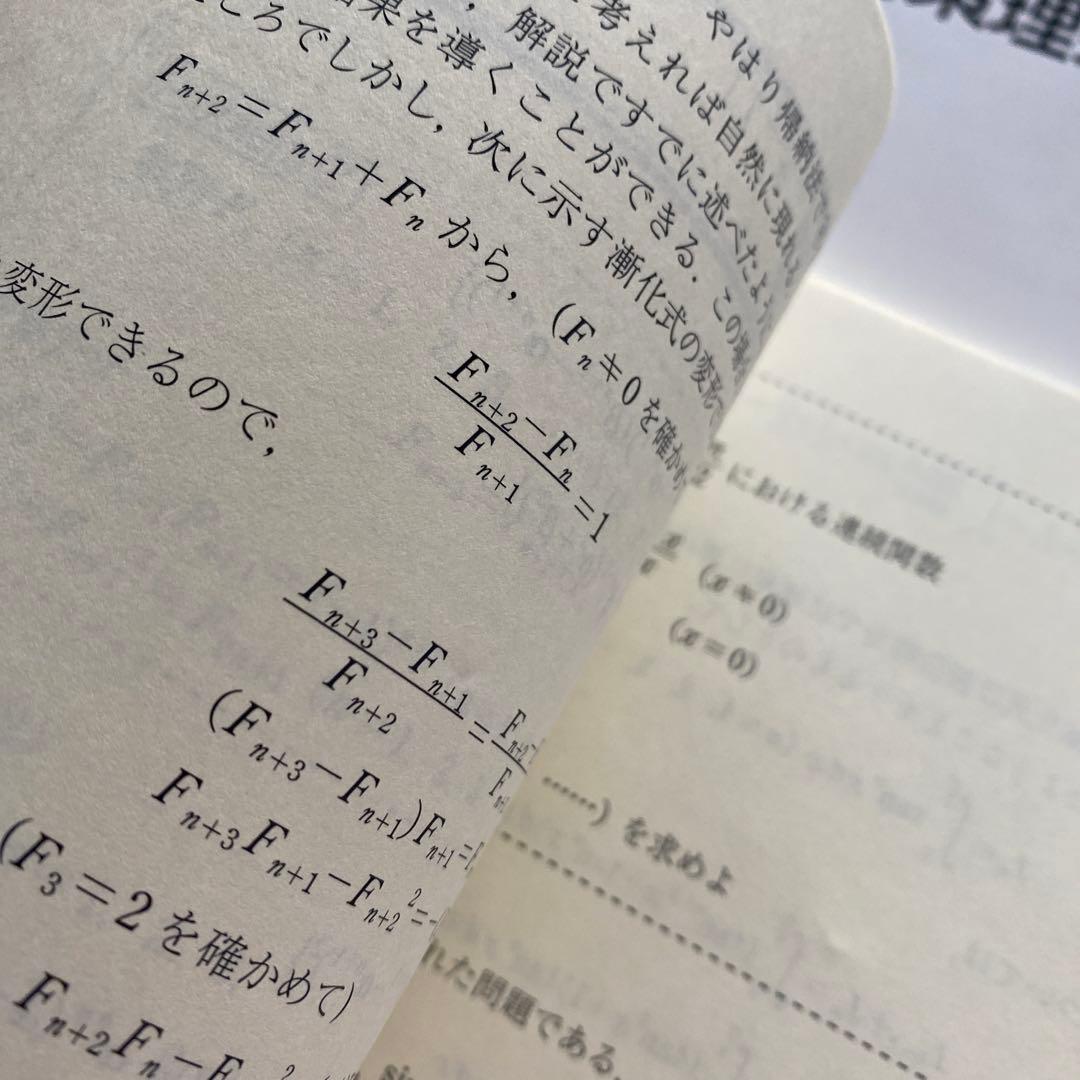 やはり帰納法で
考えれば自然に現れる
, 解説ですでに述べたよう
結果を導くことができる. この場合
ころでしかし, 次に示す漸化式の変形で
F_{n+2}=F_{n+1}+F_n から, (F_n≠0 を確かめ
\frac{F_{n+2}-F_n}{F_{n+1}}=1
変形できるので,
\frac{F_{n+3}-F_{n+1}}{F_{n+2}}=\frac{F_{n+2}-
(F_{n+3}-F_{n+1})F_{n+1}=
F_{n+3}F_{n+1}-F_{n+2}^2=-
(F_3=2 を確かめて)
F_{n+2}F_n-F
における連続関数
(x≠0)
(x=0)
……) を求めよ
れた問題である.
sin
理